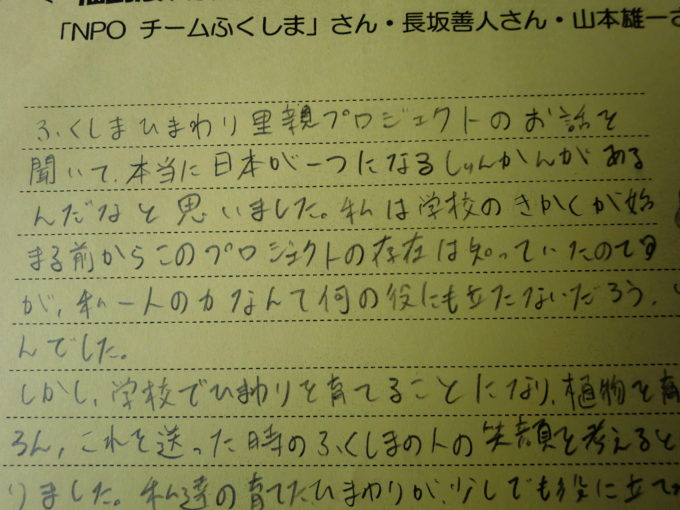 「NPO チームふくしま」さん・長坂善人さん・山本雄一さ
ふくしまひまわり里親プロジェクトのお話を
聞いて、本当に日本が一つになるしゅんかんがある
んだなと思いました。私は学校のきかくが始
まる前からこのプロジェクトの存在は知っていたのです
が、私一人の力なんて何の役にも立たないだろう、
んでした。
しかし、学校でひまわりを育てることになり、植物を育
ろん、これを送った時のふくしまの人の笑顔を考えると
りました。私達の育てたひまわりが、少しでも役に立て